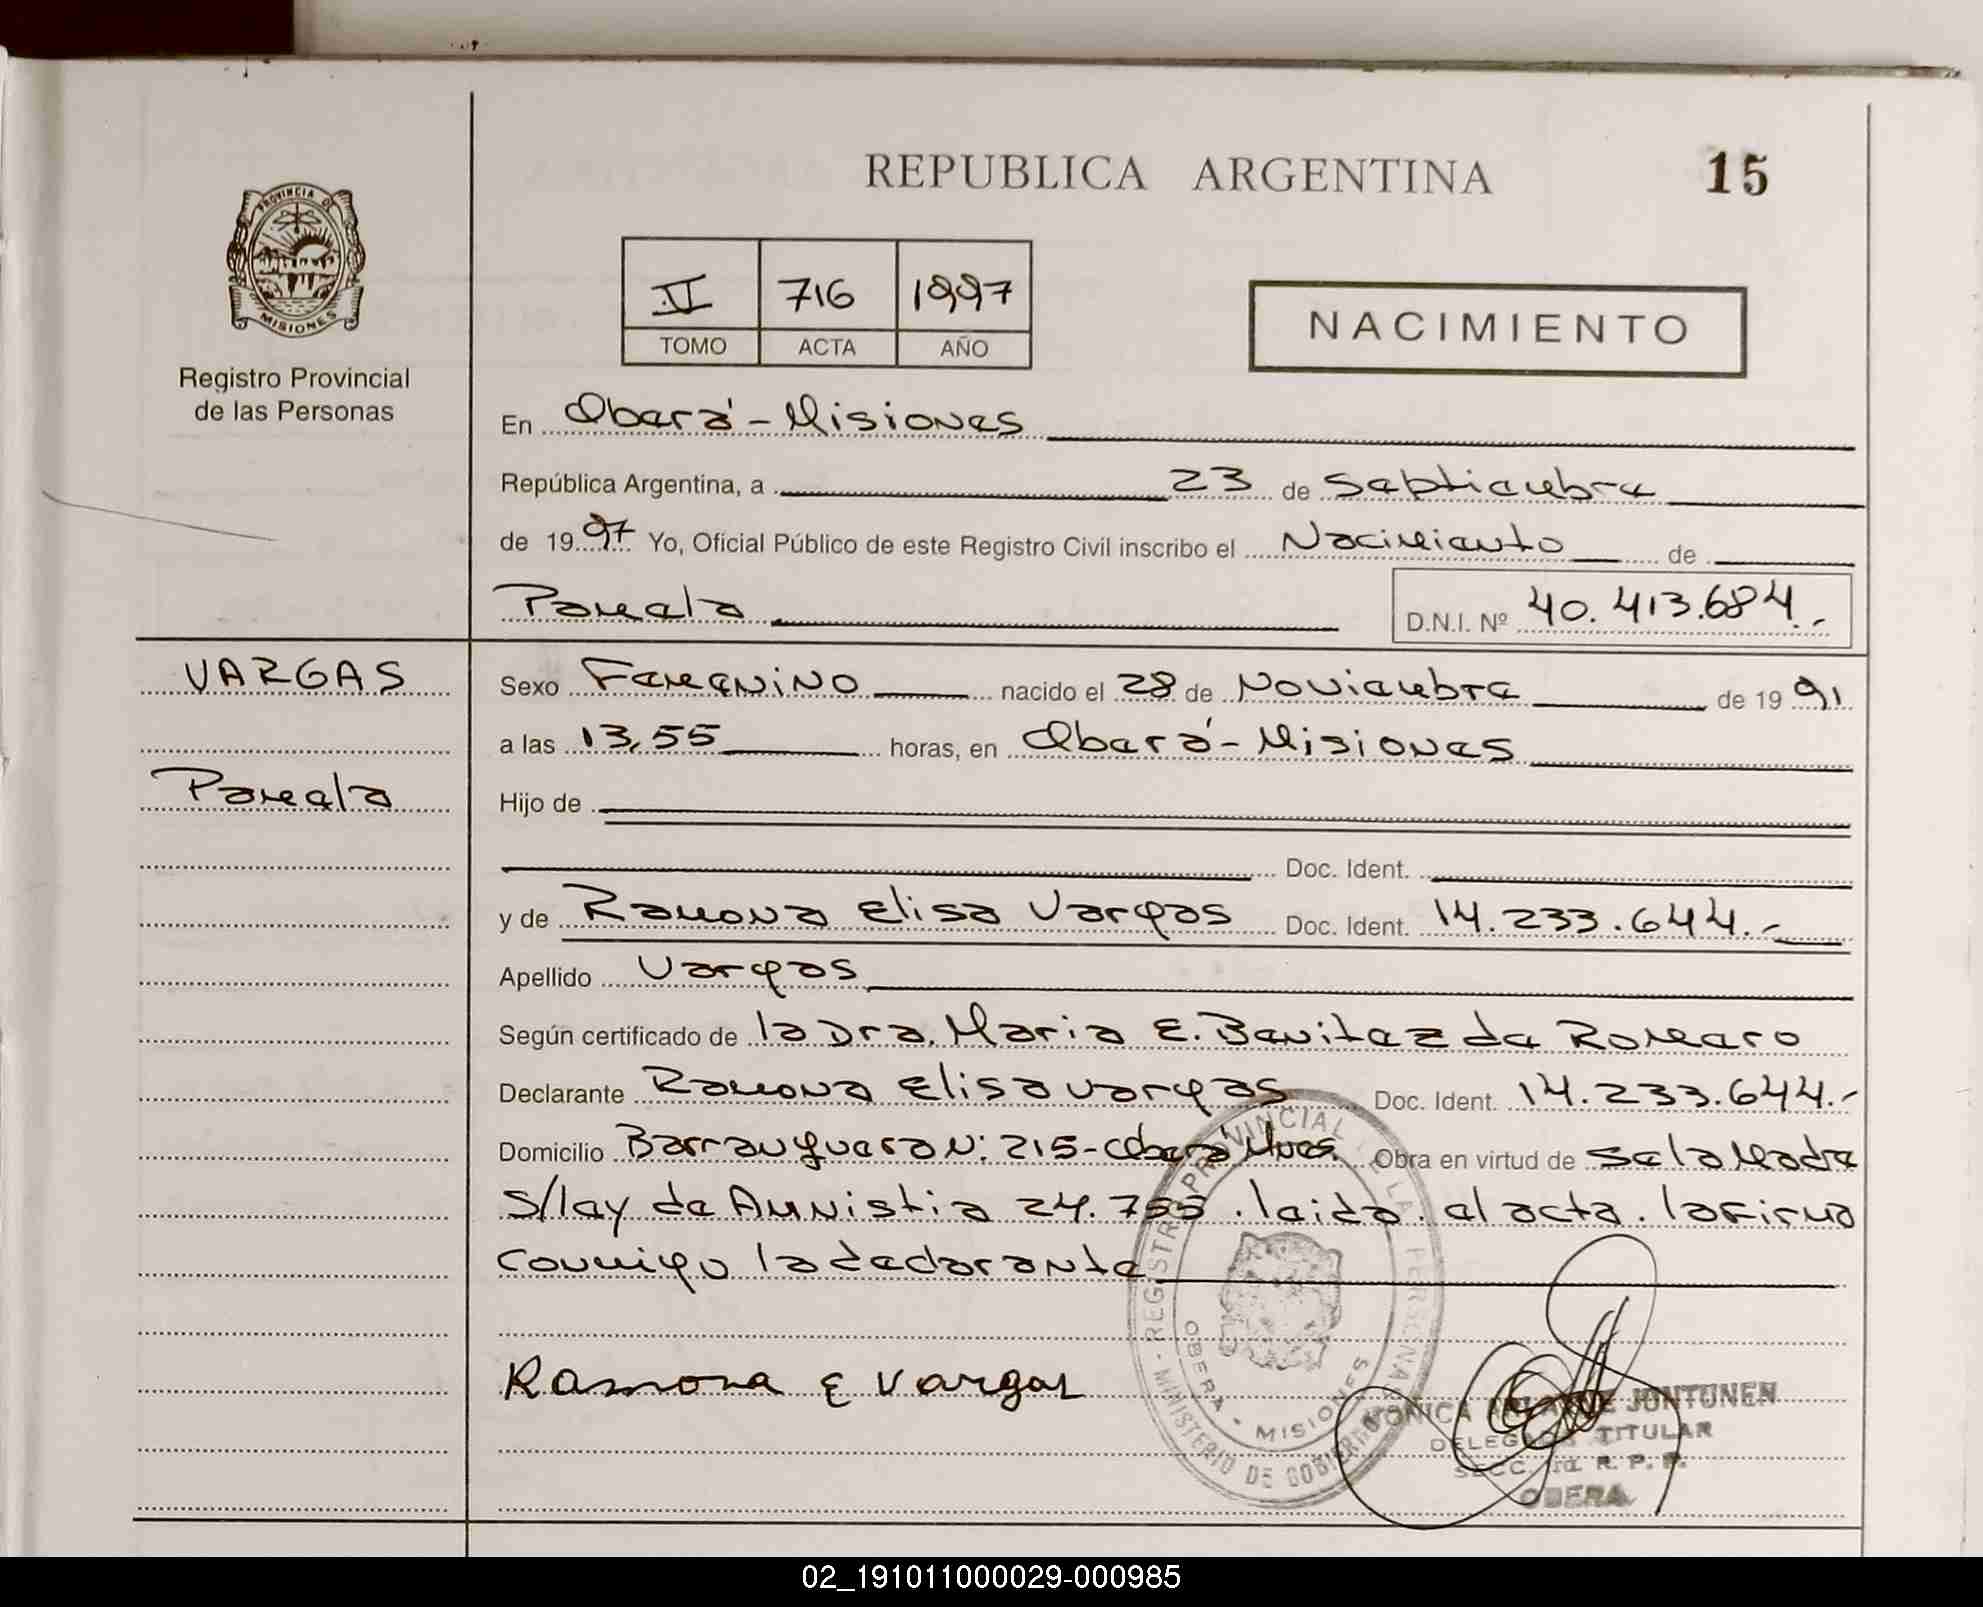 REPUBLICA ARGENTINA
15
PROVINCIA DE
MISIONES
Registro Provincial
de las Personas
II 716 1997
TOMO ACTA AÑO
NACIMIENTO
En Oberá - Misiones
República Argentina, a 23 de Septiembre
de 1997 Yo, Oficial Público de este Registro Civil inscribo el Nacimiento de
Pamela D.N.I. Nº 40.413.684.-
VARGAS
Pamela
Sexo Femenino nacido el 28 de Noviembre de 1991
a las 13,55 horas, en Oberá - Misiones
Hijo de
Doc. Ident.
y de Ramona Elisa Vargas Doc. Ident. 14.233.644.-
Apellido Vargas
Según certificado de la Dra. Maria E. Benitez de Romero
Declarante Ramona Elisa Vargas Doc. Ident. 14.233.644.-
Domicilio Barranqueras N: 215 - Oberá Mnes. Obra en virtud de ser la Madre
s/ley de Amnistia 24.755. leida el acta. la firma
conmigo la declarante
Ramona E Vargas
REGISTRO PROVINCIAL DE LAS PERSONAS
MINISTERIO DE GOBIERNO
OBERA - MISIONES
MONICA JONTUNEN
DELEGADA TITULAR
SECC. R. P. P.
OBERA
02_191011000029-000985